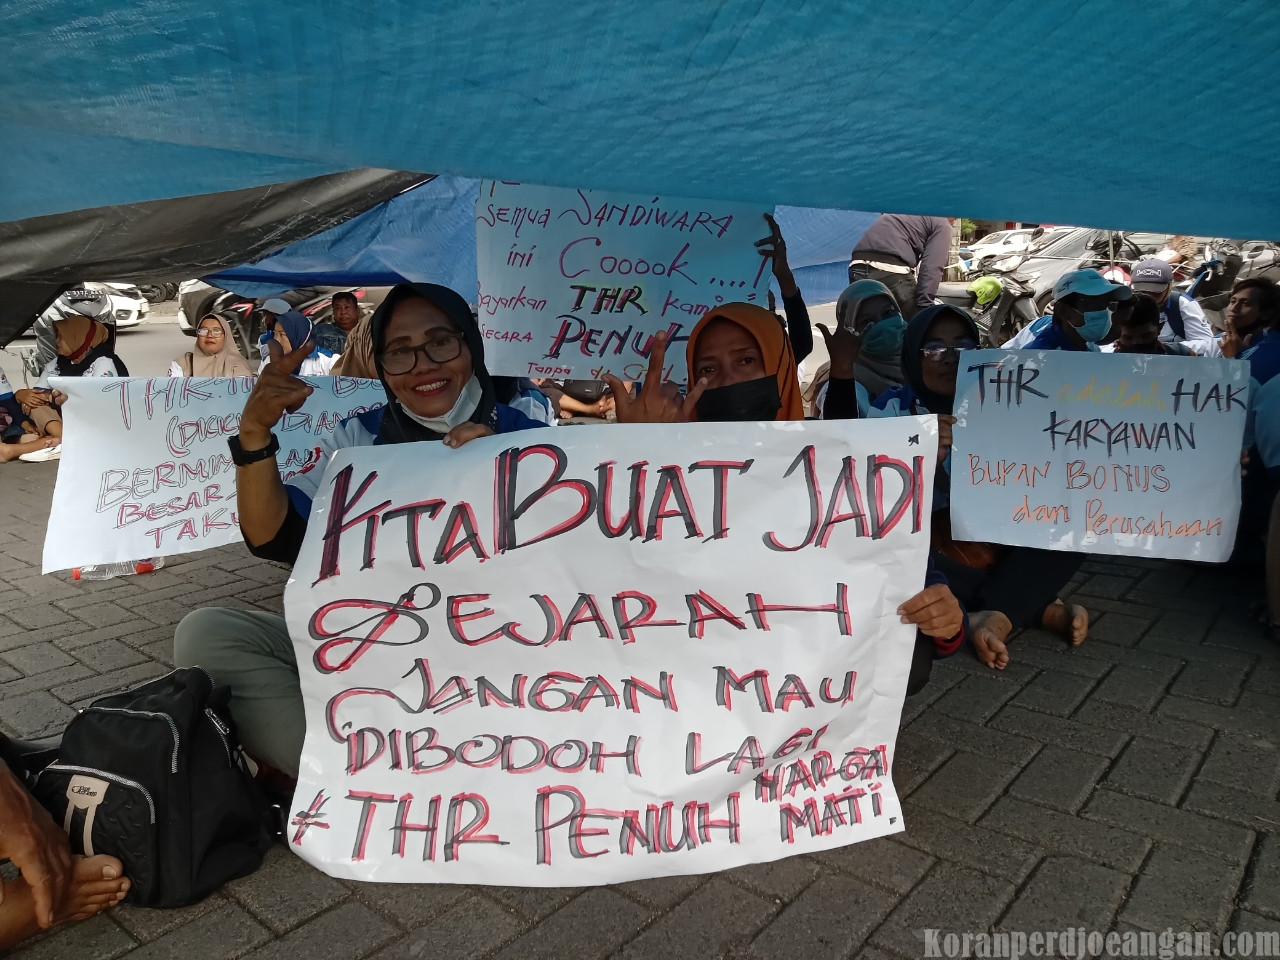 SEMUA SANDIWARA
ini Cooook ....!
Bayarkan THR kami
SECARA PENUH
Tanpa di
(DICICIL) DIANGS
BESAR
KITA BUAT JADI
SEJARAH
JANGAN MAU
DIBODOH LAGI
# THR PENUH HARGA
MATI.
THR adalah HAK
KARYAWAN
BUKAN BONUS
dari Perusahaan
Koranperdjoeangan.com